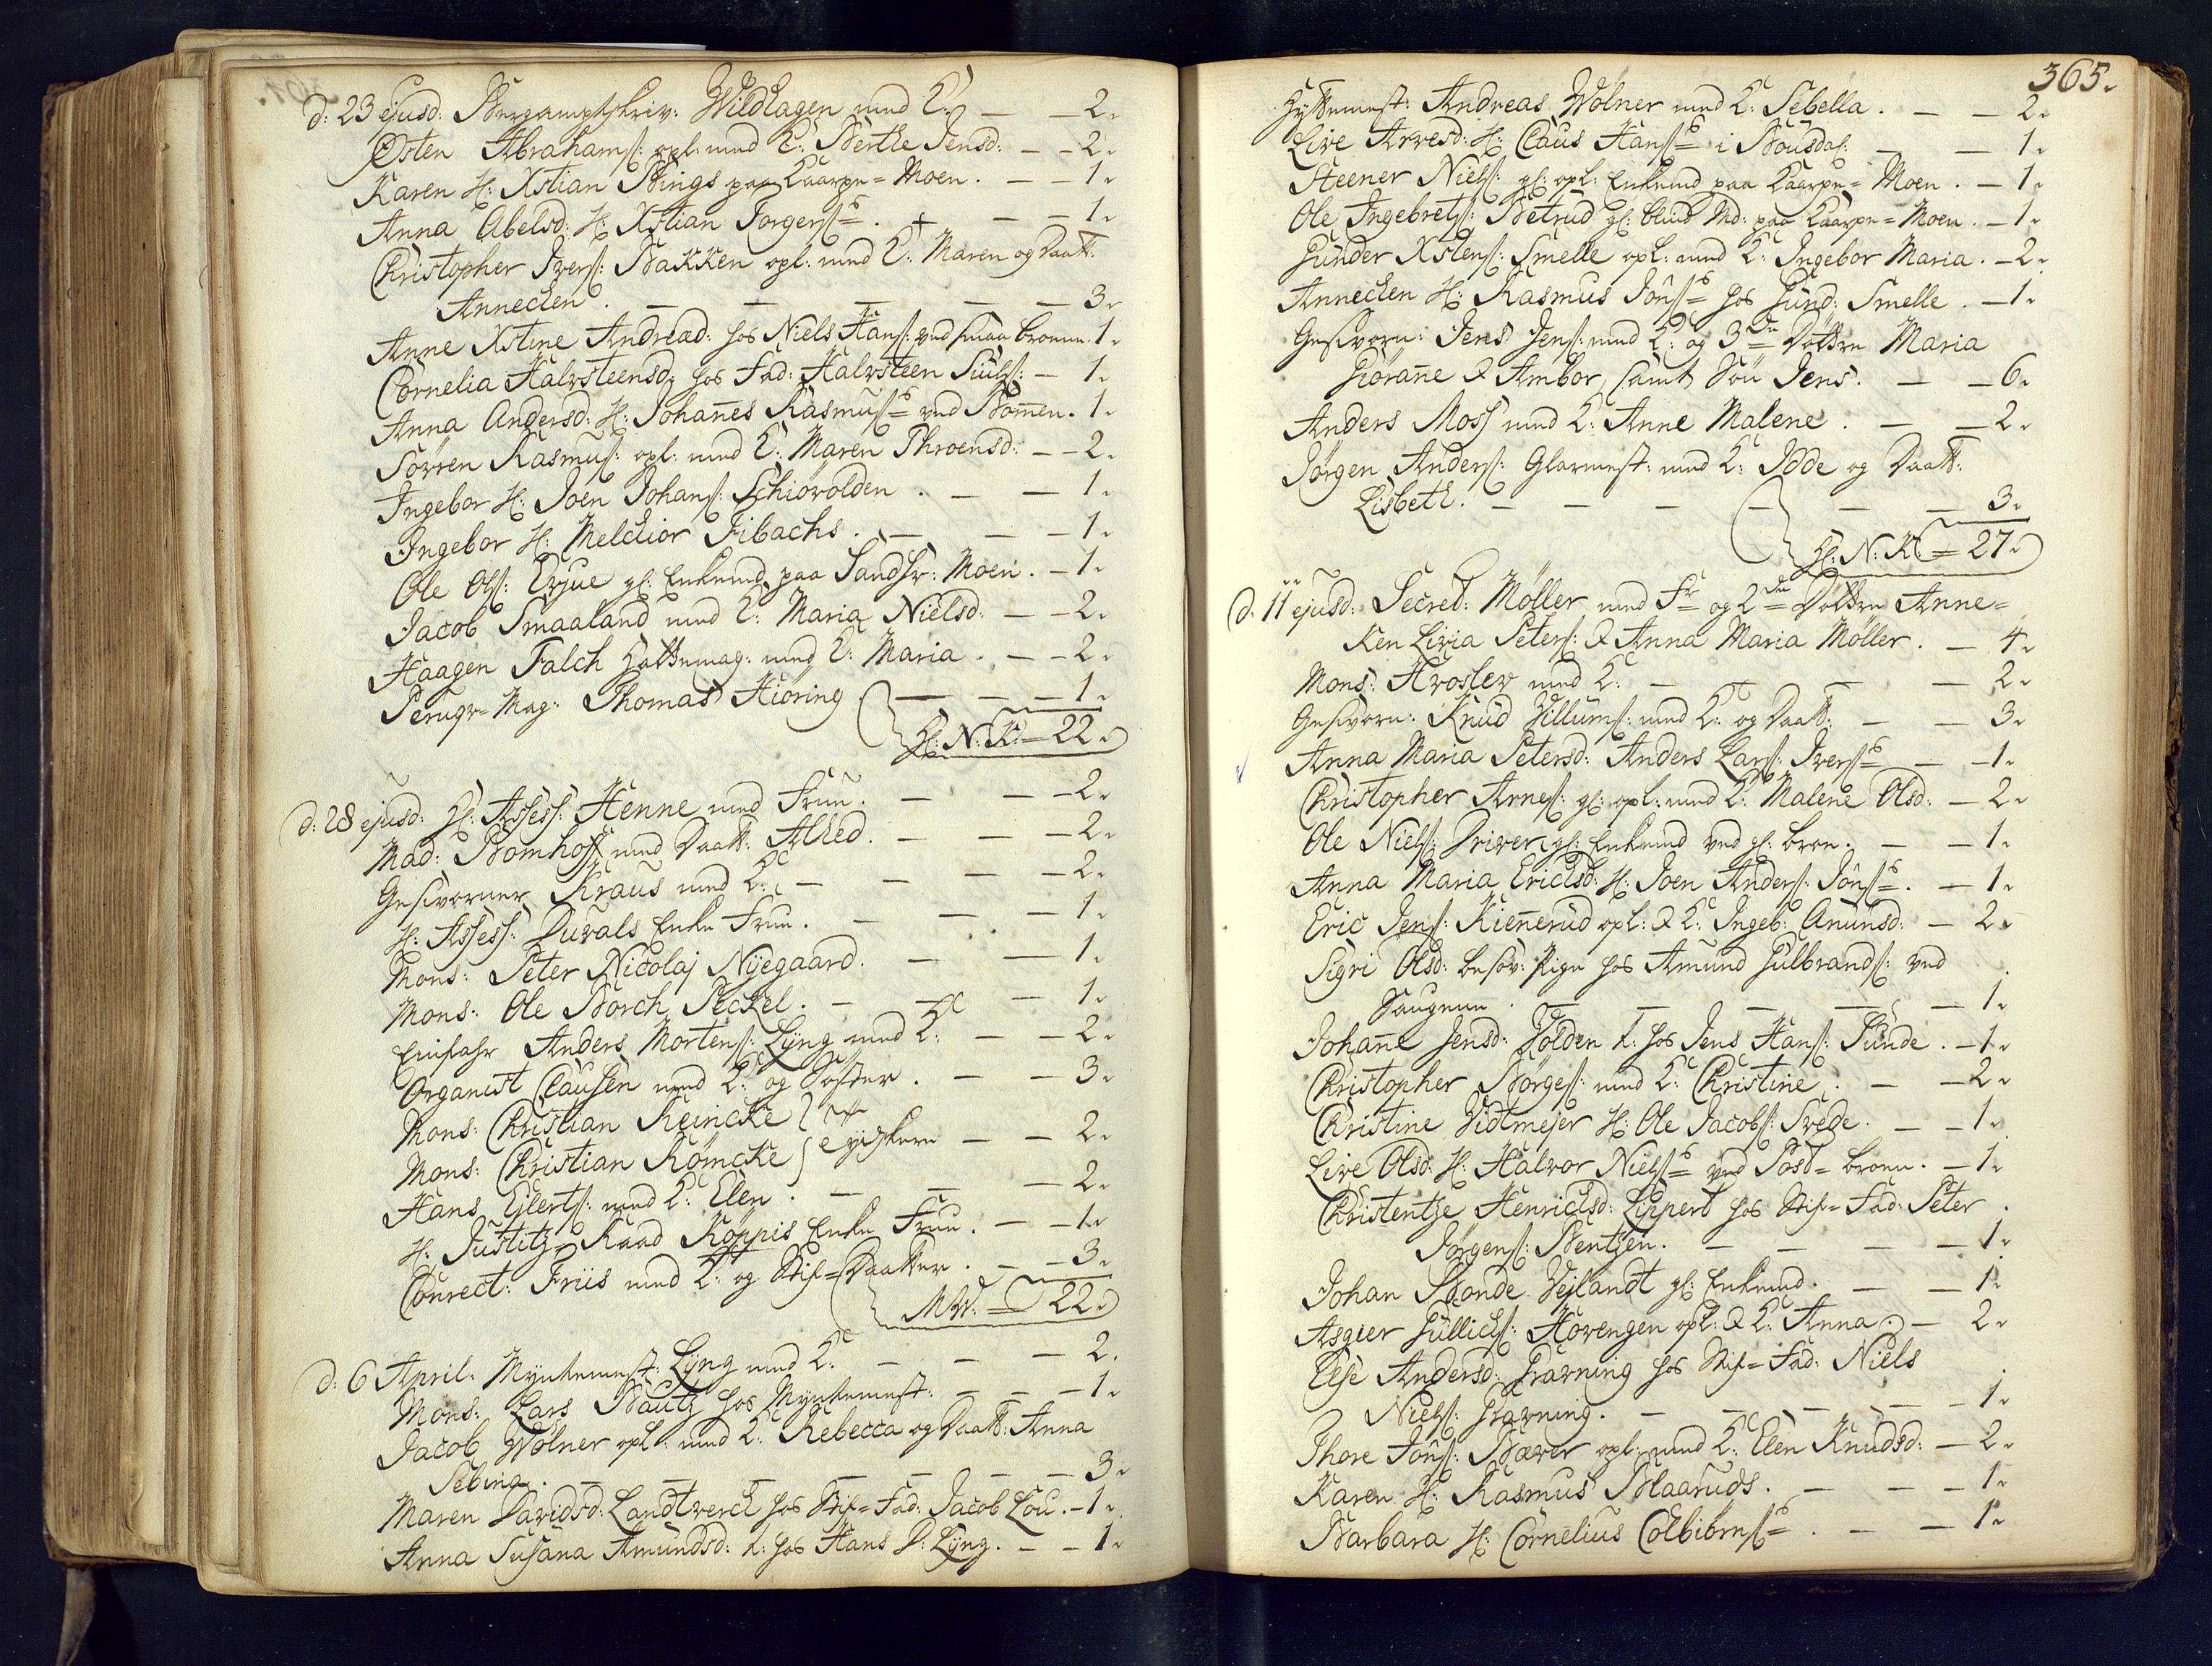 d: 23 ejusd: Bergamptskriv: Wildhagen med K: — — 2.
Østen Abrahams: opl: med K: Berthe Jensd: — — 2.
Karen H: Xstian Bings paa Kaarpe=Moen. — — 1.
Anna Abelsd: H: Xstian Torgers: — — 1.
Christopher Ivers: Bakken opl: med K: Maren og Daatt:
Annechen. — — — — — 3.
Anne Xstine Andread: hos Niels Hans: ved smaa broene. 1.
Cornelia Halvsteensd: hos Fad: Halvsteen — 1.
Anna Andersd: H: Johanes Rasmus: ved Bommen. 1.
Sörren Rasmus: opl: med K: Maren Throensd: — — 2.
Ingebor H: Joen Johans: Schiövolden. — — 1.
Ingebor H: Melchior Fibachs. — — — 1.
Ole Ols: Evjue gl: Enkemd paa Sandsv: Moen. — 1.
Jacob Smaaland med K: Maria Nielsd: — — 2.
Haagen Falch Hattemag: med K: Maria. — — 2.
Peruqv=Mag: Thomas Hiöring — — 1.
H: N: K: = 22.
d: 28 ejusd: H: Assess: Henne med Frue. — — 2.
Mad: Bomhoff med Daatt: Alhed. — — — 2.
Gesvorner Kraus med K: — — — 2.
H: Assess: Duvals Enke Frue. — — — 1.
Mons: Peter Nicolaj Nyegaard. — — 1.
Mons: Ole Borch Peckel. — — — 1.
Einfahr Anders Mortens: Lyng med K: — — 2.
Organist Clausen med K: og Söster. — — 3.
Mons: Christian Reincke
Mons: Christian Römcke — — 2.
Hans Ejlerts: med K: Elen. — — — 2.
H: Justitz=Raad Röppis Enke Frue. — — 1.
Conrect: Friis med K: og Stif=Daatter. — — 3.
MW. = 22.
d: 6 April. Myntemest: Lyng med K: — — — 2.
Mons: Lars Bautz hos Myntemest: — — — 1.
Jacob Wölner opl: med K: Rebecca og Daatt: Anna
Sebina. — — — — — — 3.
Maren Davidsd: Landtverch hos Stif=Fad: Jacob Lou. — 1.
Anna Susana Amundsd: t: hos Hans P: Lyng. — — 1.
365.
Hyttemest: Andreas Wölner med K: Sebella. — — 2.
Live Arvesd: H: Claus Hans: i — — 1.
Steener Niels: gl: opl: Enkemd paa Kaarpe=Moen. — 1.
Ole Ingebrets: Betrud gl: blind Md: paa Kaarpe=Moen. — 1.
Gunder Xstens: Smelle opl: med K: Ingebor Maria. — 2.
Annechen H: Rasmus Jöns: hos Gund: Smelle. — 1.
Gesvorn: Jens Jens: med K: og 3de Döttre Maria
Giöranne & Ambor, samt Sön Jens. — — 6.
Anders Moss med K: Anne Malene. — — 2.
Jörgen Anders: Glarmest: med K: Idde og Daatt:
Lisbeth. — — — — — — 3.
H: N: K: = 27.
d: 11 ejusd: Secret: Möller med Fr: og 2de Döttre Anne=
Ken Livia Peters: & Anna Maria Möller. — 4.
Mons: Hvoslev med K: — — — — 2.
Gesvorn: Knud Villums: med K: og Daatt: — — 3.
Anna Maria Petersd: Anders Lars: Ivers: — — 1.
Christopher Arnes: gl: opl: med K: Malene Olsd: — 2.
Ole Niels: Driver gl: Enkemd ved gl: broe. — — 1.
Anna Maria Erichsd: H: Joen Anders: Jöns: — 1.
Eric Jens: Kiennerud opl: & K: Ingeb: Anunsd: — 2.
Sigri Olsd: besov: Pige hos Amund Gulbrands: ved
Saugene. — — — — — 1.
Johanne Jensd: Holden t: hos Jens Hans: Funde. — 1.
Christopher Börges: med K: Christine. — — 2.
Christine Vidtmejer H: Ole Jacobs: Svede. — — 1.
Live Olsd: H: Halvor Niels: ved Post=broen. — 1.
Christentze Henrichsd: Lippert hos Stif=Fad: Peter
Jörgens: Bentzen. — — — — — 1.
Johan Bonde Vejlandt gl: Enkemd. — — 1.
Asgier Gullichs: Hovengen opl: & K: Anna. — 2.
Else Andersd: Gravning hos Stif=Fad: Niels
Niels: Gravning. — — — — — 1.
Thore Jöns: Bæver opl: med K: Elen Knudsd: — 2.
Karen H: Rasmus Blaaruds. — — — 1.
Barbara H: Cornelius Colbiörns: — — 1.